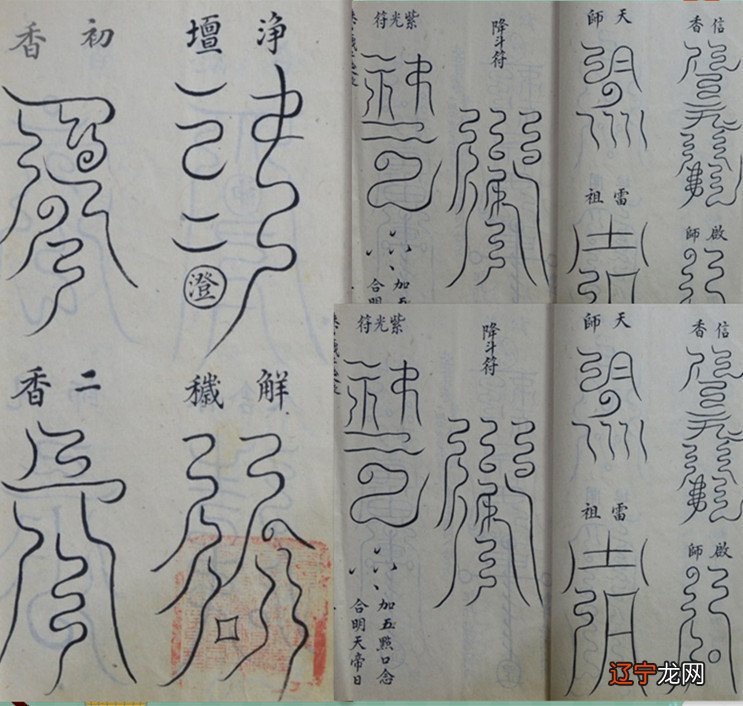 浄壇
澄
初香
觧穢
二香
信香
啟師
天師
雷祖
降斗符
紫光符
加五
合明
信香
啟師
天師
雷祖
降斗符
紫光符
加五點口念
合明天帝日
辽宁龙网